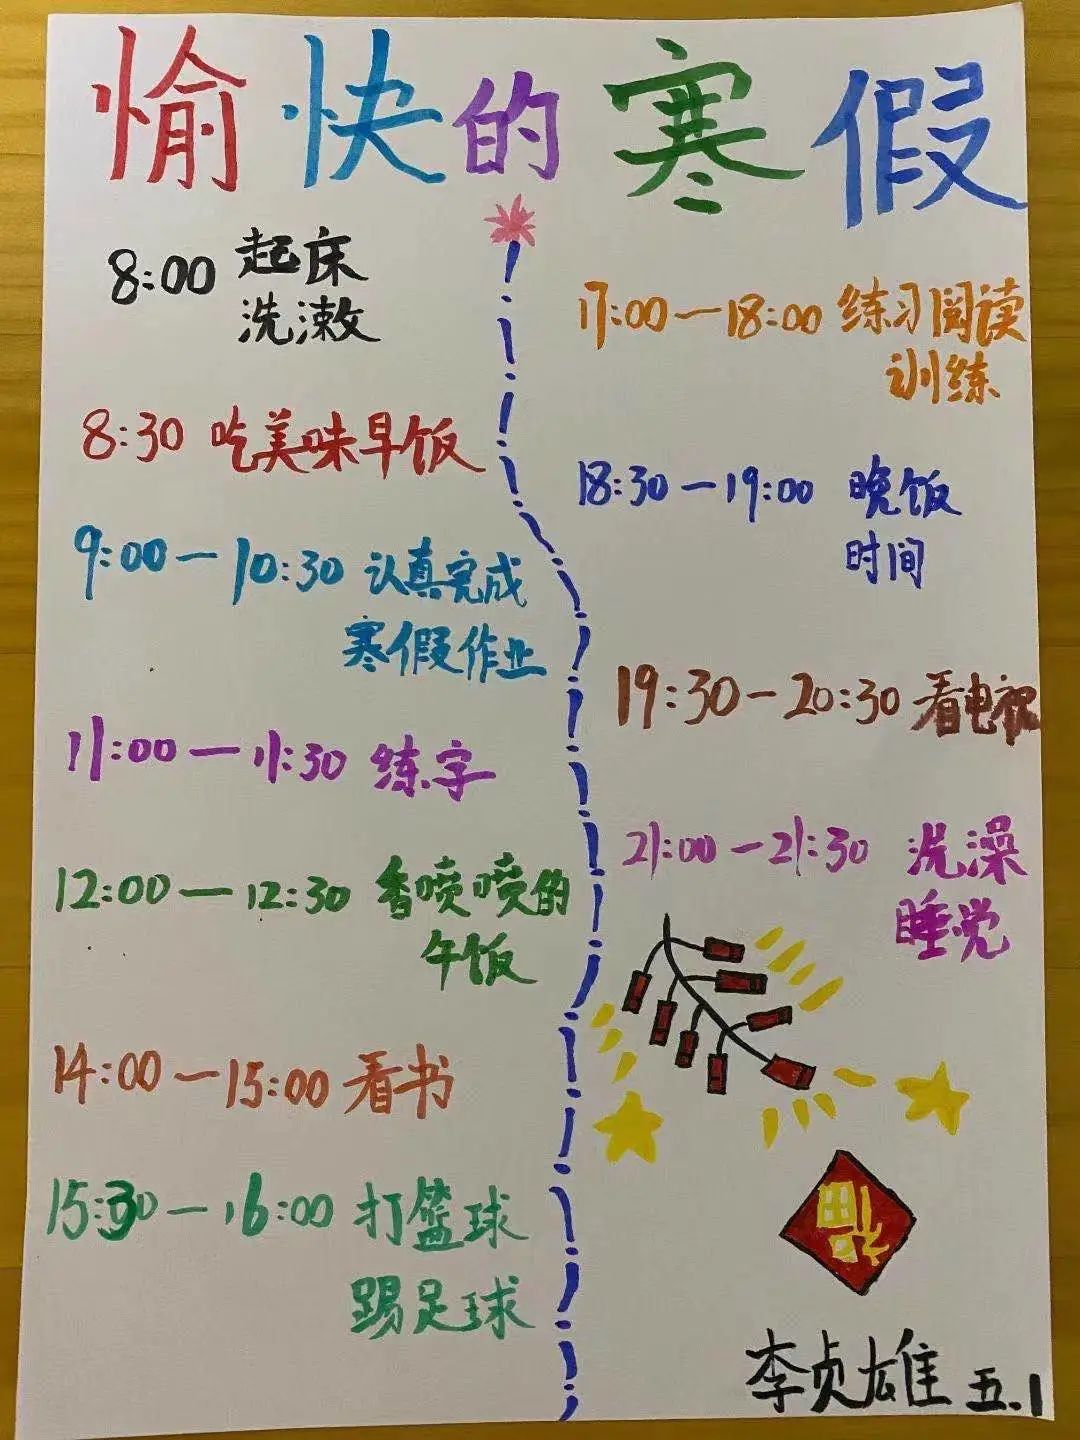 愉快的寒假
8:00 起床
洗漱
8:30 吃美味早饭
9:00—10:30 认真完成
寒假作业
11:00—11:30 练字
12:00—12:30 香喷喷的
午饭
14:00—15:00 看书
15:30—16:00 打篮球
踢足球
17:00—18:00 练习阅读
训练
18:30—19:00 晚饭
时间
19:30—20:30 看电视
21:00—21:30 洗澡
睡觉
福
李贞雄 五.1